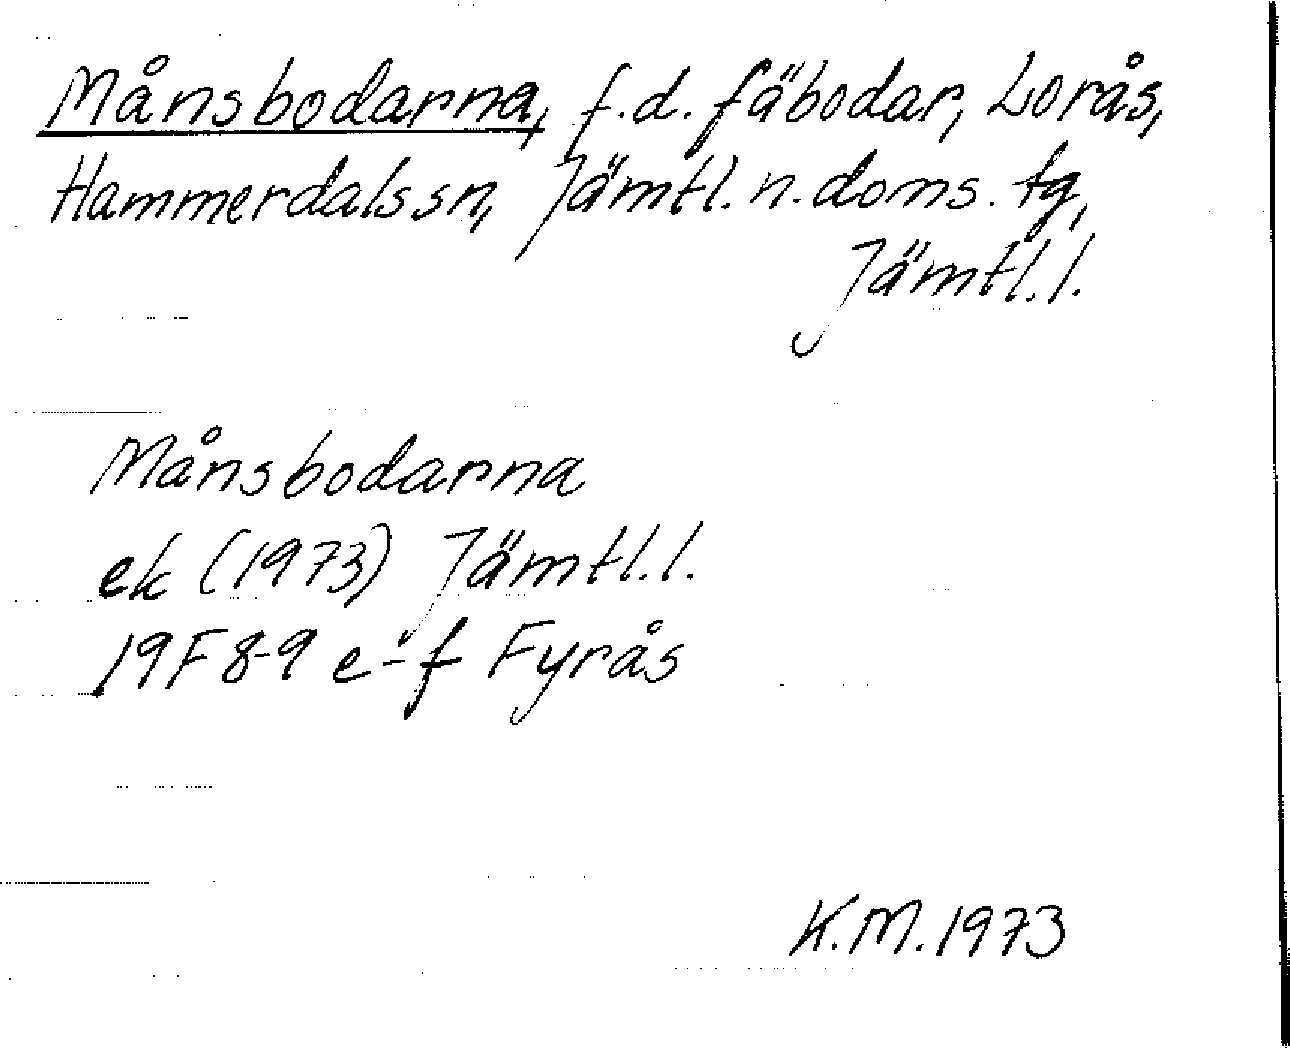 Månsbodarna, f.d. fäbodar, Lorås,
Hammerdals sn, Jämtl. n. doms. tg,
Jämtl. l.
Månsbodarna
ek (1973) Jämtl. l.
19F 8-9 e-f Fyrås
K.M. 1973